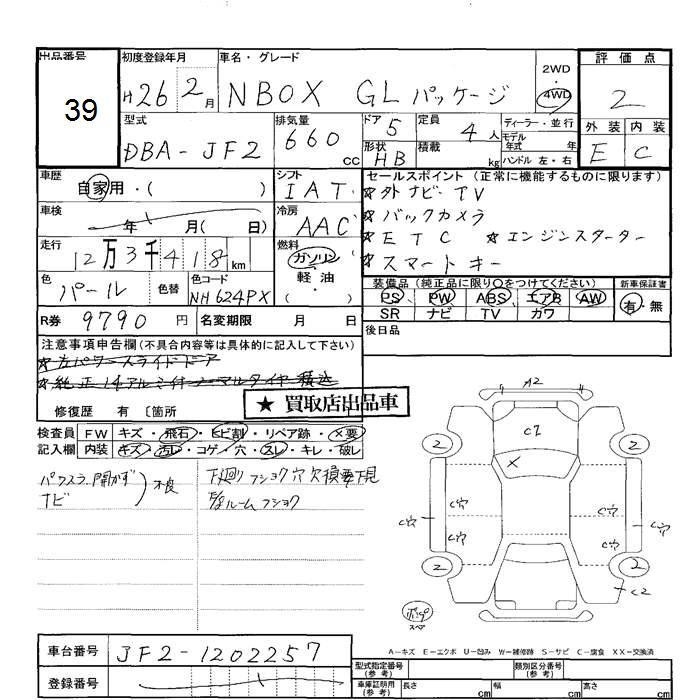 出品番号 初度登録年月 車名・グレード 評価点
39 H26 2月 NBOX GLパッケージ 2WD 4WD 2
型式 排気量 ドア 定員 ディーラー・並行 外装 内装
DBA-JF2 660cc 5 4人 モデル年式 年 E C
形状 HB 積載 kg ハンドル 左・右
車歴 シフト セールスポイント(正常に機能するものに限ります)
自家用・( ) IAT ★外ナビ・TV
車検 冷房 ★バックカメラ
年 月( 日) AAC ★ETC ★エンジンスターター
走行 燃料 ★スマートキー
12万3千418km ガソリン・軽油・( )
色 色替 色コード 装備品(純正品に限り○をつけてください) 新車保証書
パール NH624PX PS PW ABS エアB AW 有・無
SR ナビ TV カワ
R券 9790円 名変期限 月 日 後日品
注意事項申告欄(不具合内容等は具体的に記入して下さい)
★左パワースライドドア
★純正14アルミ付ノーマルタイヤ積込
修復歴 有 〔箇所
★買取店出品車
検査員 FW キズ・飛石・ヒビ割・リペア跡・X要
記入欄 内装 キズ・汚レ・コゲ・穴・スレ・キレ・破レ
パワスラ開かず 下廻りフショク穴欠損要下見
ナビ 不良
ルームフショク
A2
C2
X
2 2
C穴 C穴 C穴 C穴
C穴 C穴
2 2
C2
スペア
A-キズ E-エクボ U-凹み W-補修跡 S-サビ C-腐食 XX-交換済
車台番号 JF2-1202257
登録番号
型式指定番号(参考) 類別区分番号(参考)
車庫証明用(参考) 長さ cm 幅 cm 高さ cm